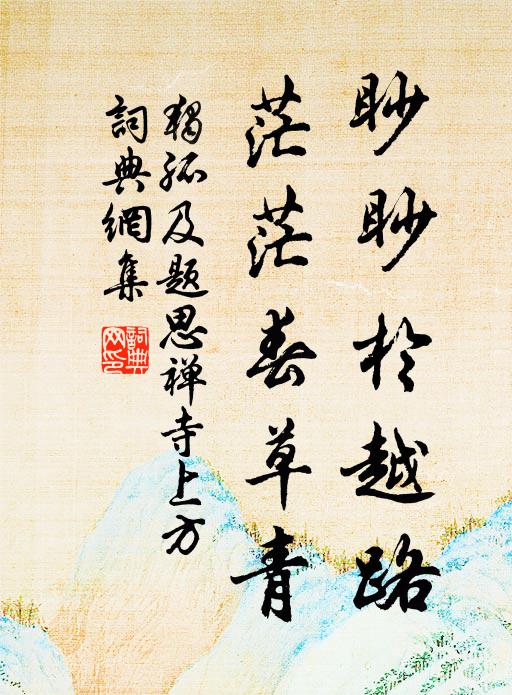 眇眇於越路
茫茫春草青
獨孤及题思禅寺上方
詞典網集
詞典
网印